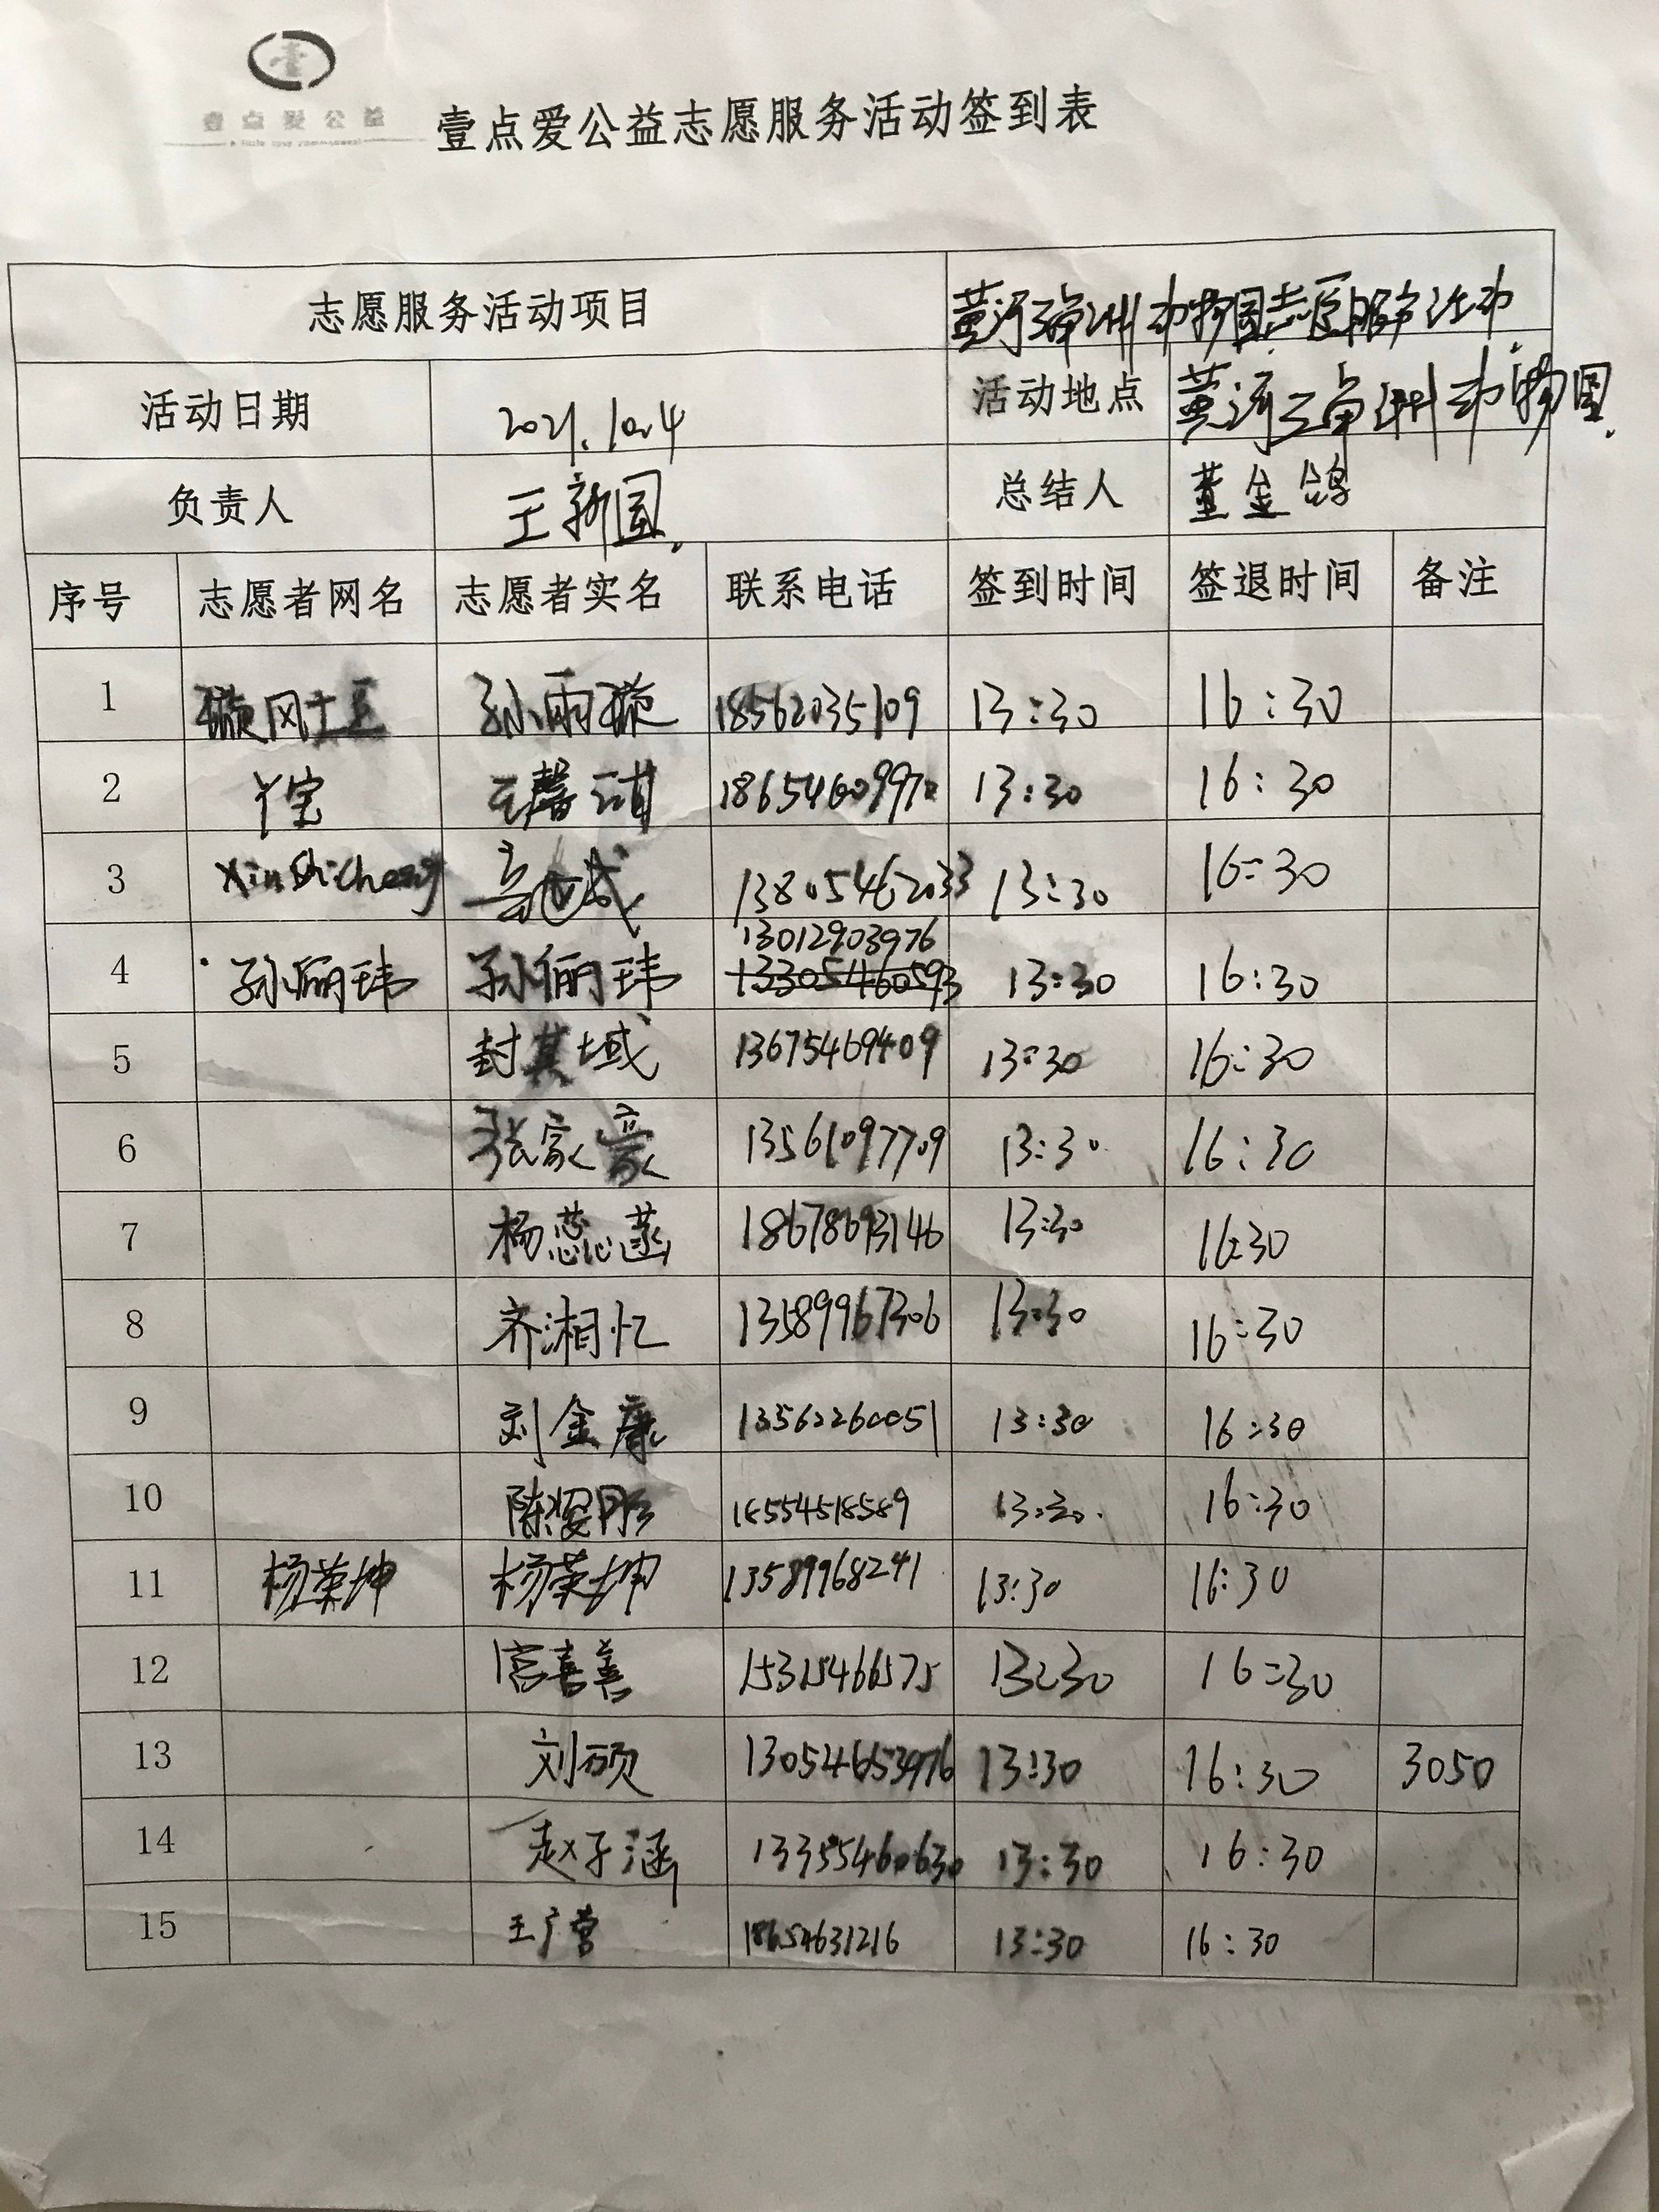 壹点爱公益
壹点爱公益志愿服务活动签到表
志愿服务活动项目 黄河三角洲动物园志愿服务活动
活动日期 2021.10.4 活动地点 黄河三角洲动物园
负责人 王新国 总结人 董金鸽
序号 志愿者网名 志愿者实名 联系电话 签到时间 签退时间 备注
1 璇风土豆 孙雨璇 18562035109 13:30 16:30
2 丫宝 王馨靖 18654609970 13:30 16:30
3 XinShicheng 13805462033 13:30 16:30
4 孙俪玮 孙俪玮 13012903976 13305460593 13:30 16:30
5 封其域 13675469409 13:30 16:30
6 张家豪 13561097709 13:30 16:30
7 杨蕊菡 18678693146 13:30 16:30
8 齐湘忆 13589967306 13:30 16:30
9 刘金康 13562260051 13:30 16:30
10 陈姿彤 18554518589 13:30 16:30
11 杨荣坤 杨荣坤 13589968241 13:30 16:30
12 宫喜善 15315466575 13:30 16:30
13 刘硕 13054653976 13:30 16:30 3050
14 赵子涵 13355460630 13:30 16:30
15 王广营 18654631216 13:30 16:30